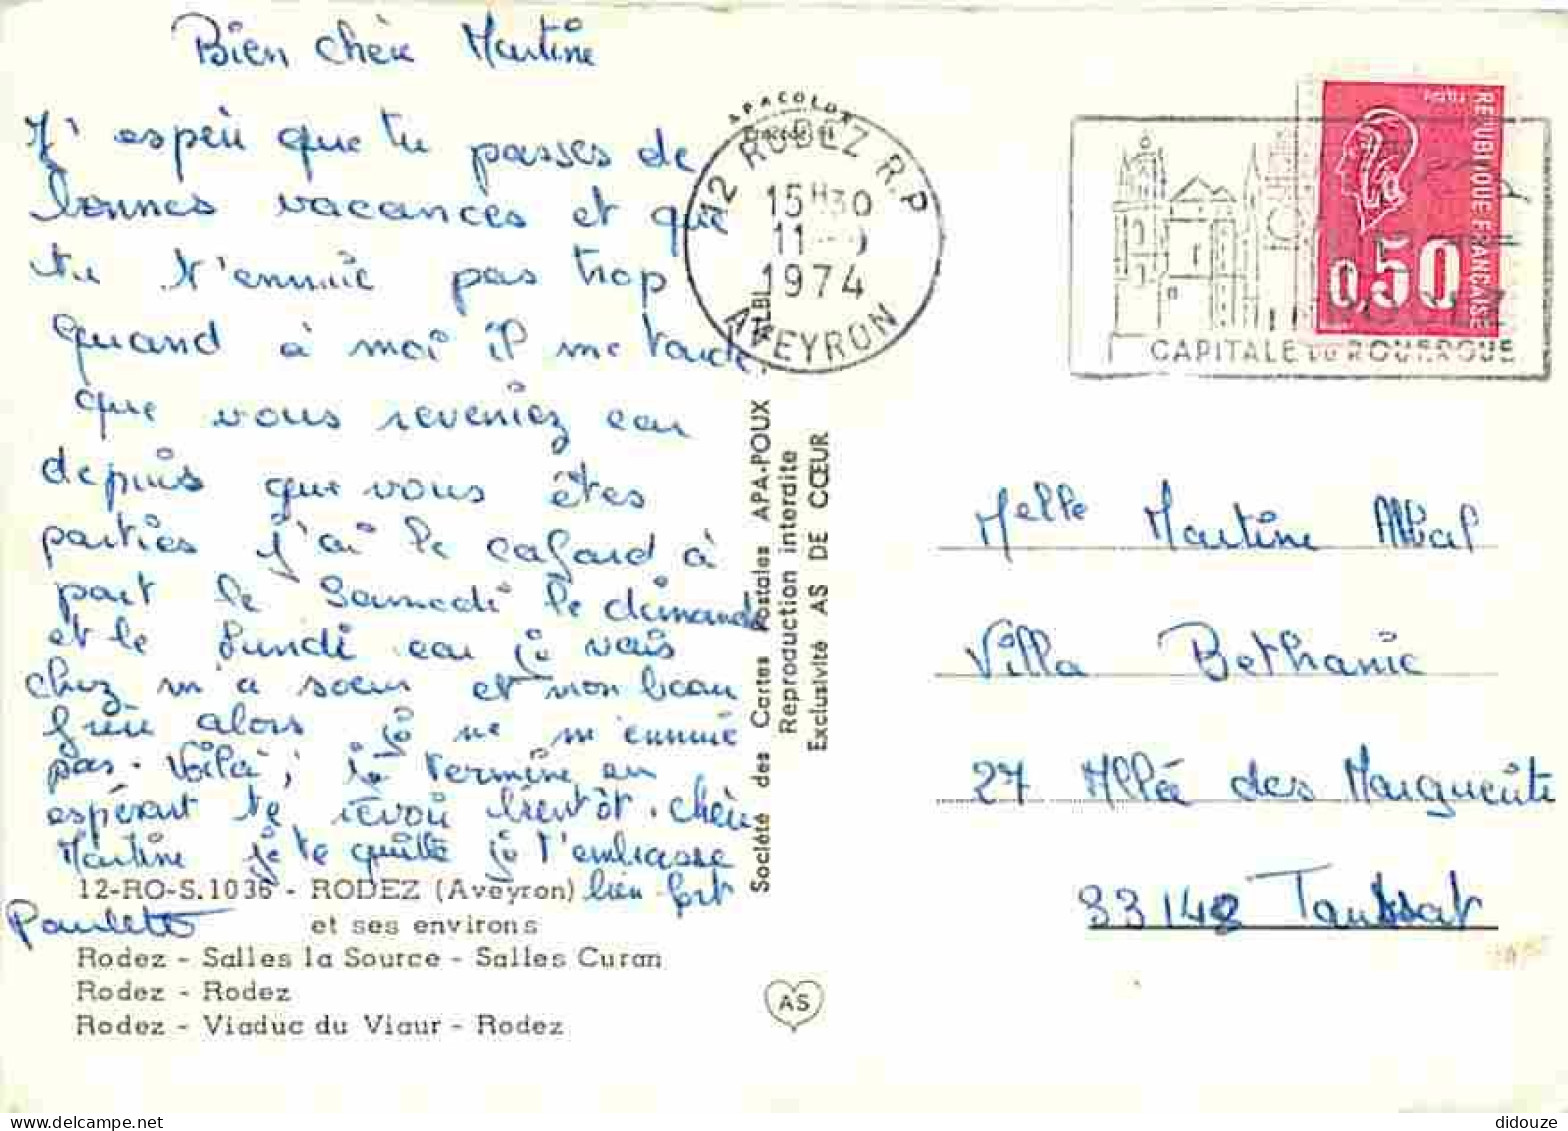 Bien chère Martine
J'espère que tu passes de
bonnes vacances et que
tu t'ennuie pas trop
quand à moi il me tarde
que vous reveniez car
depuis que vous êtes
parties j'ai le cafard à
part le Samedi le dimanche
et le Lundi car je vais
chez m'a soeur et mon beau
frère alors je ne m'ennuie
pas. Voilà, je termine en
espérant te revoir bientôt. Chère
Martine je te quitte je t'embrasse
bien fort
Paulette
12-RO-S.1036 - RODEZ (Aveyron)
et ses environs
Rodez - Salles la Source - Salles Curan
Rodez - Rodez
Rodez - Viaduc du Viaur - Rodez
APACOLOR
Société des Cartes Postales APA-POUX - ALBI
Reproduction interdite
Exclusivité AS DE CŒUR
AS
12 RODEZ R.P
15H30
11
1974
AVEYRON
CAPITALE DU ROUERGUE
REPUBLIQUE FRANCAISE
0.50
Melle Martine
Villa Bethanie
27 Allée des Marguerite
33148 Taussat
didouze